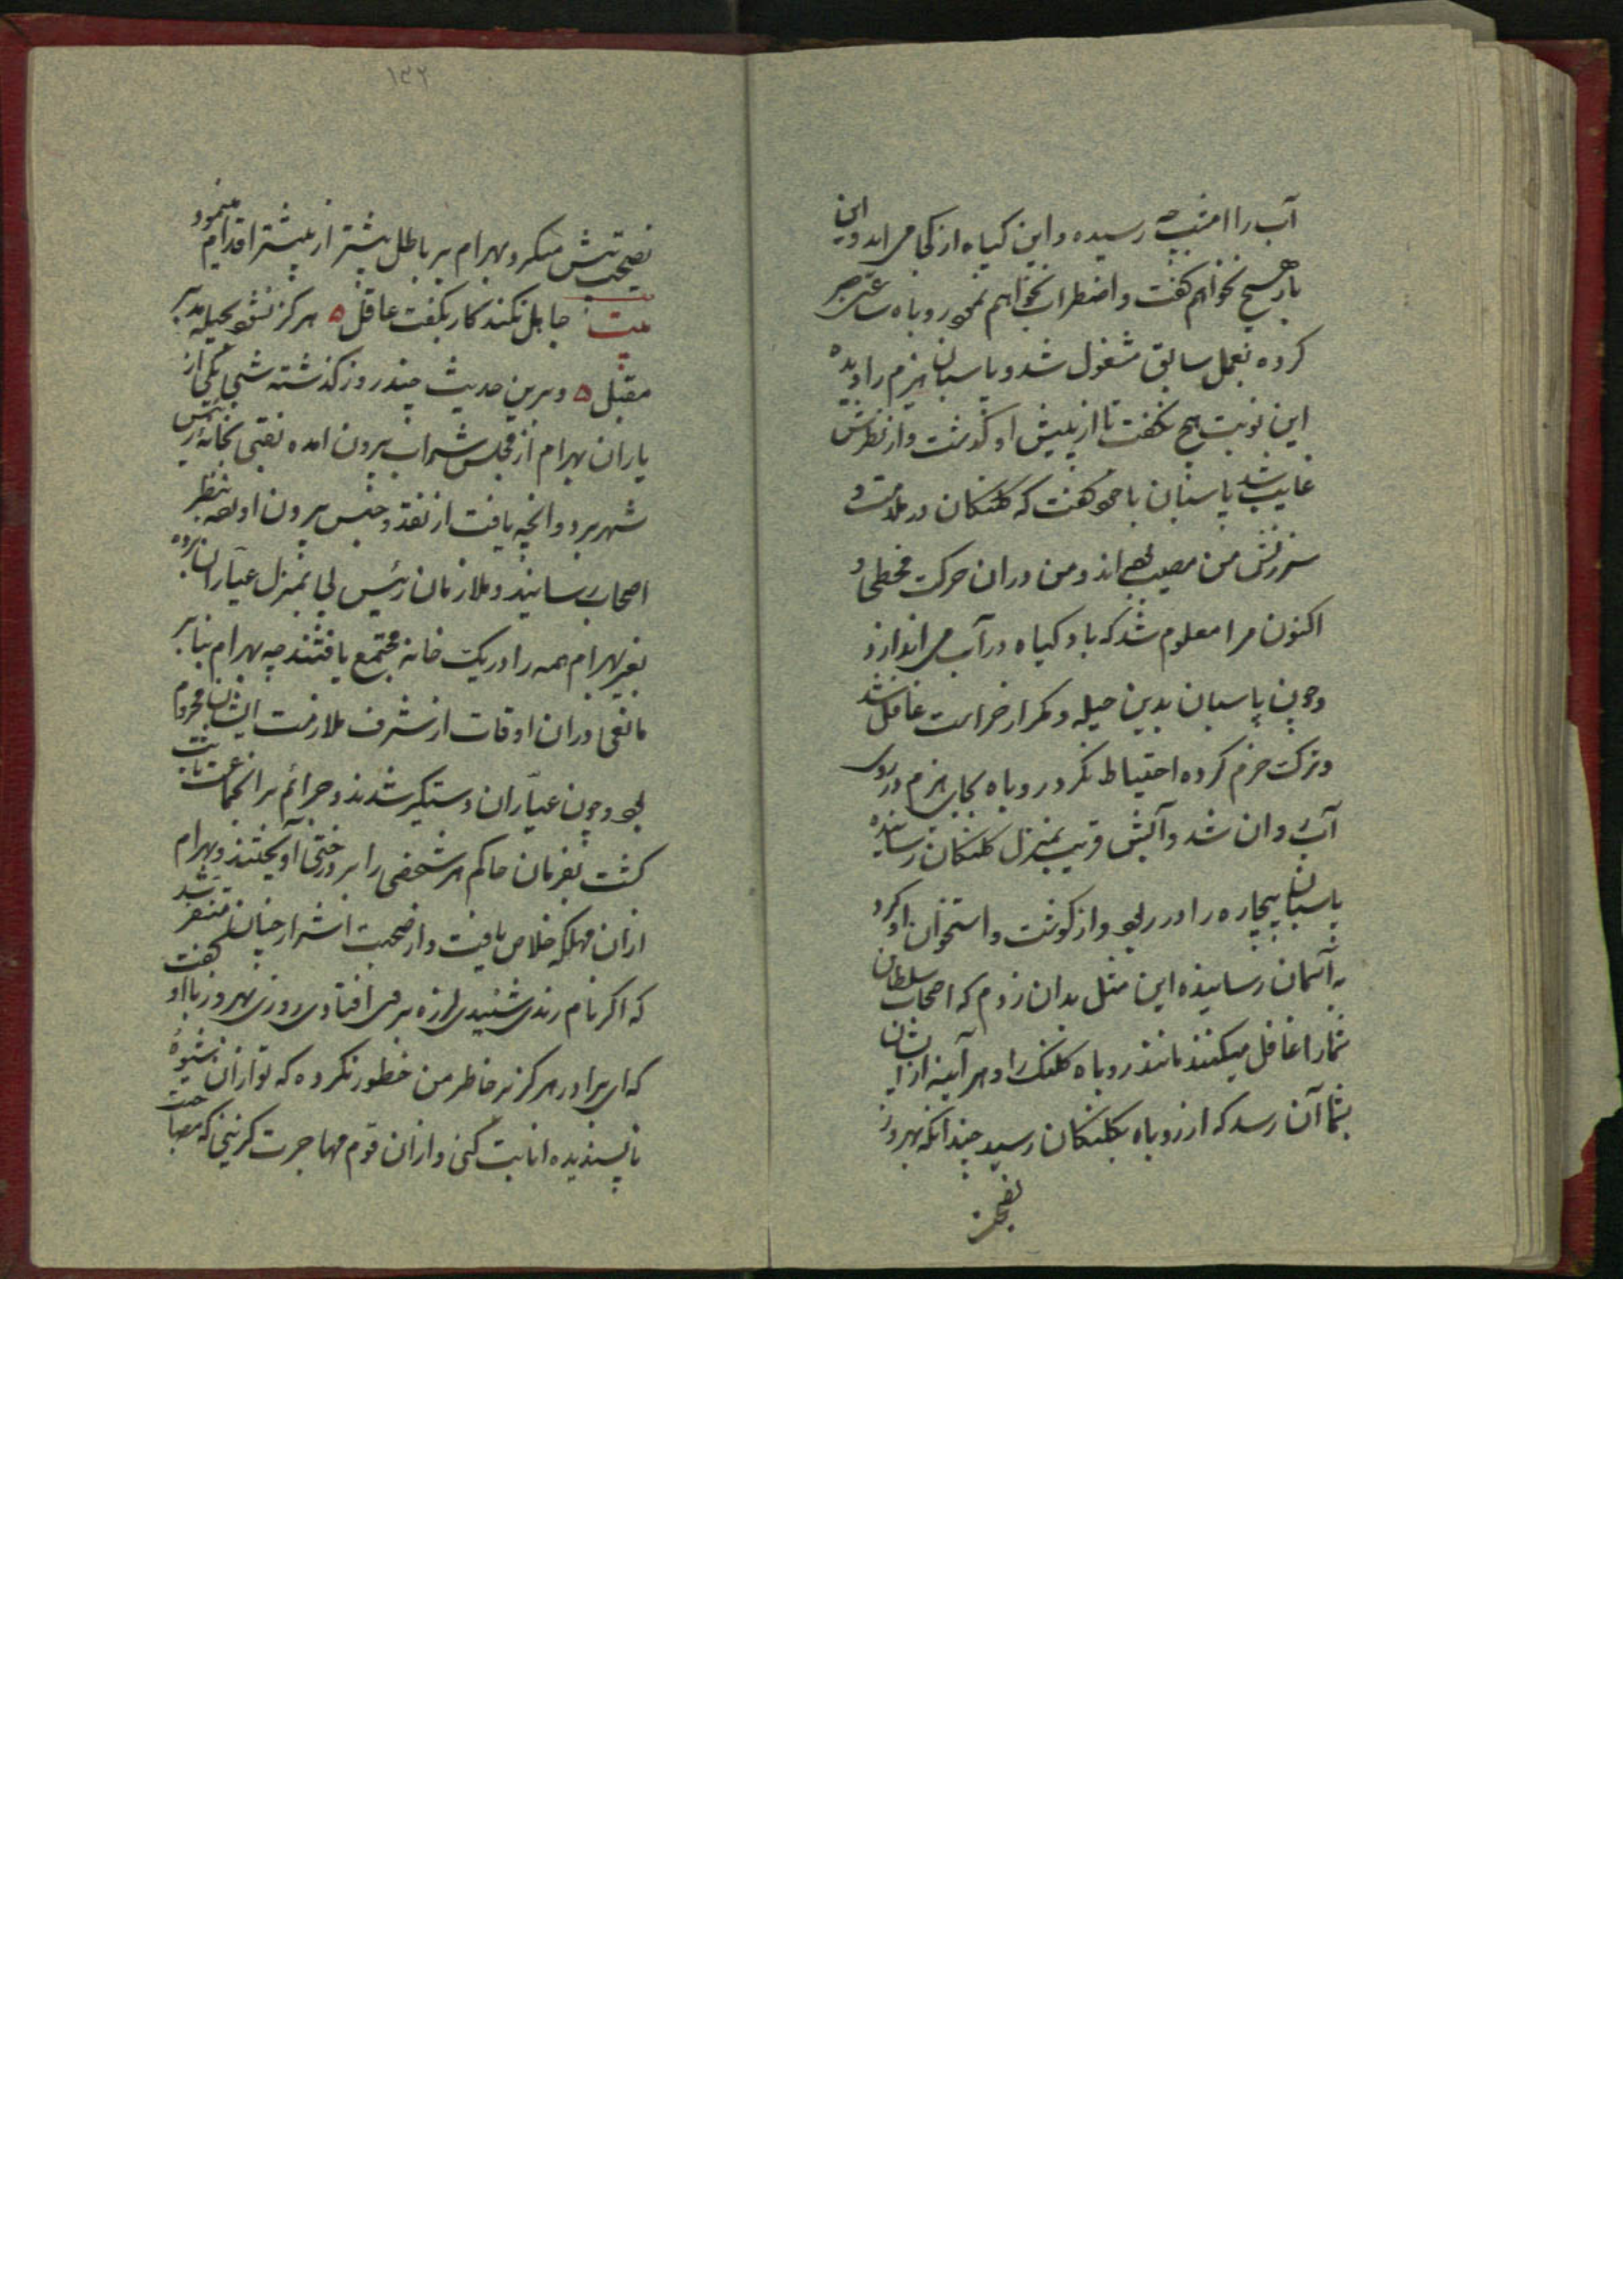 آب را امشب چه رسیده و این کیاه از کجا می اید و این
بار هیچ نخواهم کفت و اضطراب نخواهم نمود روباه ساعتی صبر
کرده بعمل سابق مشغول شد و پاسبان هیزم را دیده
این نوبت هیچ نکفت تا از پیش او کذشت و از نظرش
غایب شد پاسبان با خود کفت که کلنکان در ملامت و
سرزنش من مصیب بوده اند و من دران حرکت مخطی و
اکنون مرا معلوم شد که باد کیاه در آب می اندازد
و چون پاسبان بدین حیله و مکر از حراست غافل شد
و ترک حزم کرده احتیاط نکرد روباه بجای هیزم در روی
آب روان شد و آتش قریب بمنزل کلنکان رسانیده
پاسبان بیچاره را در ربود و از کوشت و استخوان او کرد
به آسمان رسانیده این مثل بدان زدم که اصحاب سلطان
شما را غافل میکنند مانند روباه کلنک را و هر آینه از ایشان
بشما آن رسد که از روباه بکلنکان رسید چندانکه بهروز
نصیحتش میکرد بهرام بر باطل بیشتر از پیشتر اقدام مینمود
بیت جاهل نکند کار بکفت عاقل ه هرکز نشود بحیله مدبر
مقبل ه و برین حدیث چند روز کذشته شبی یکی از
یاران بهرام از مجلس شراب بیرون امده نقبی بخانه رئیس
شهر برد و انچه یافت از نقد و جنس بیرون اورده بنظر
اصحاب رسانید و ملازمان رئیس پی بمنزل عیاران برده
بغیر بهرام همه را در یک خانه مجتمع یافتند چه بهرام بنا بر
مانعی دران اوقات از شرف ملازمت ایشان محروم
بود و چون عیاران دستکیر شدند و جرائم بر انجماعت ثابت
کشت بفرمان حاکم هر شخصی را بر درختی آویختند و بهرام
ازان مهلکه خلاص یافت و از صحبت اشرار چنان متنفر شد
که اکر نام رندی شنیدی لرزه بر وی افتادی روزی بهروز با او کفت
که ای برادر هرکز بر خاطر من خطور نکرده که تو ازان شیوهٔ
ناپسندیده انابت کنی و ازان قوم مهاجرت کزینی که مصاحبت